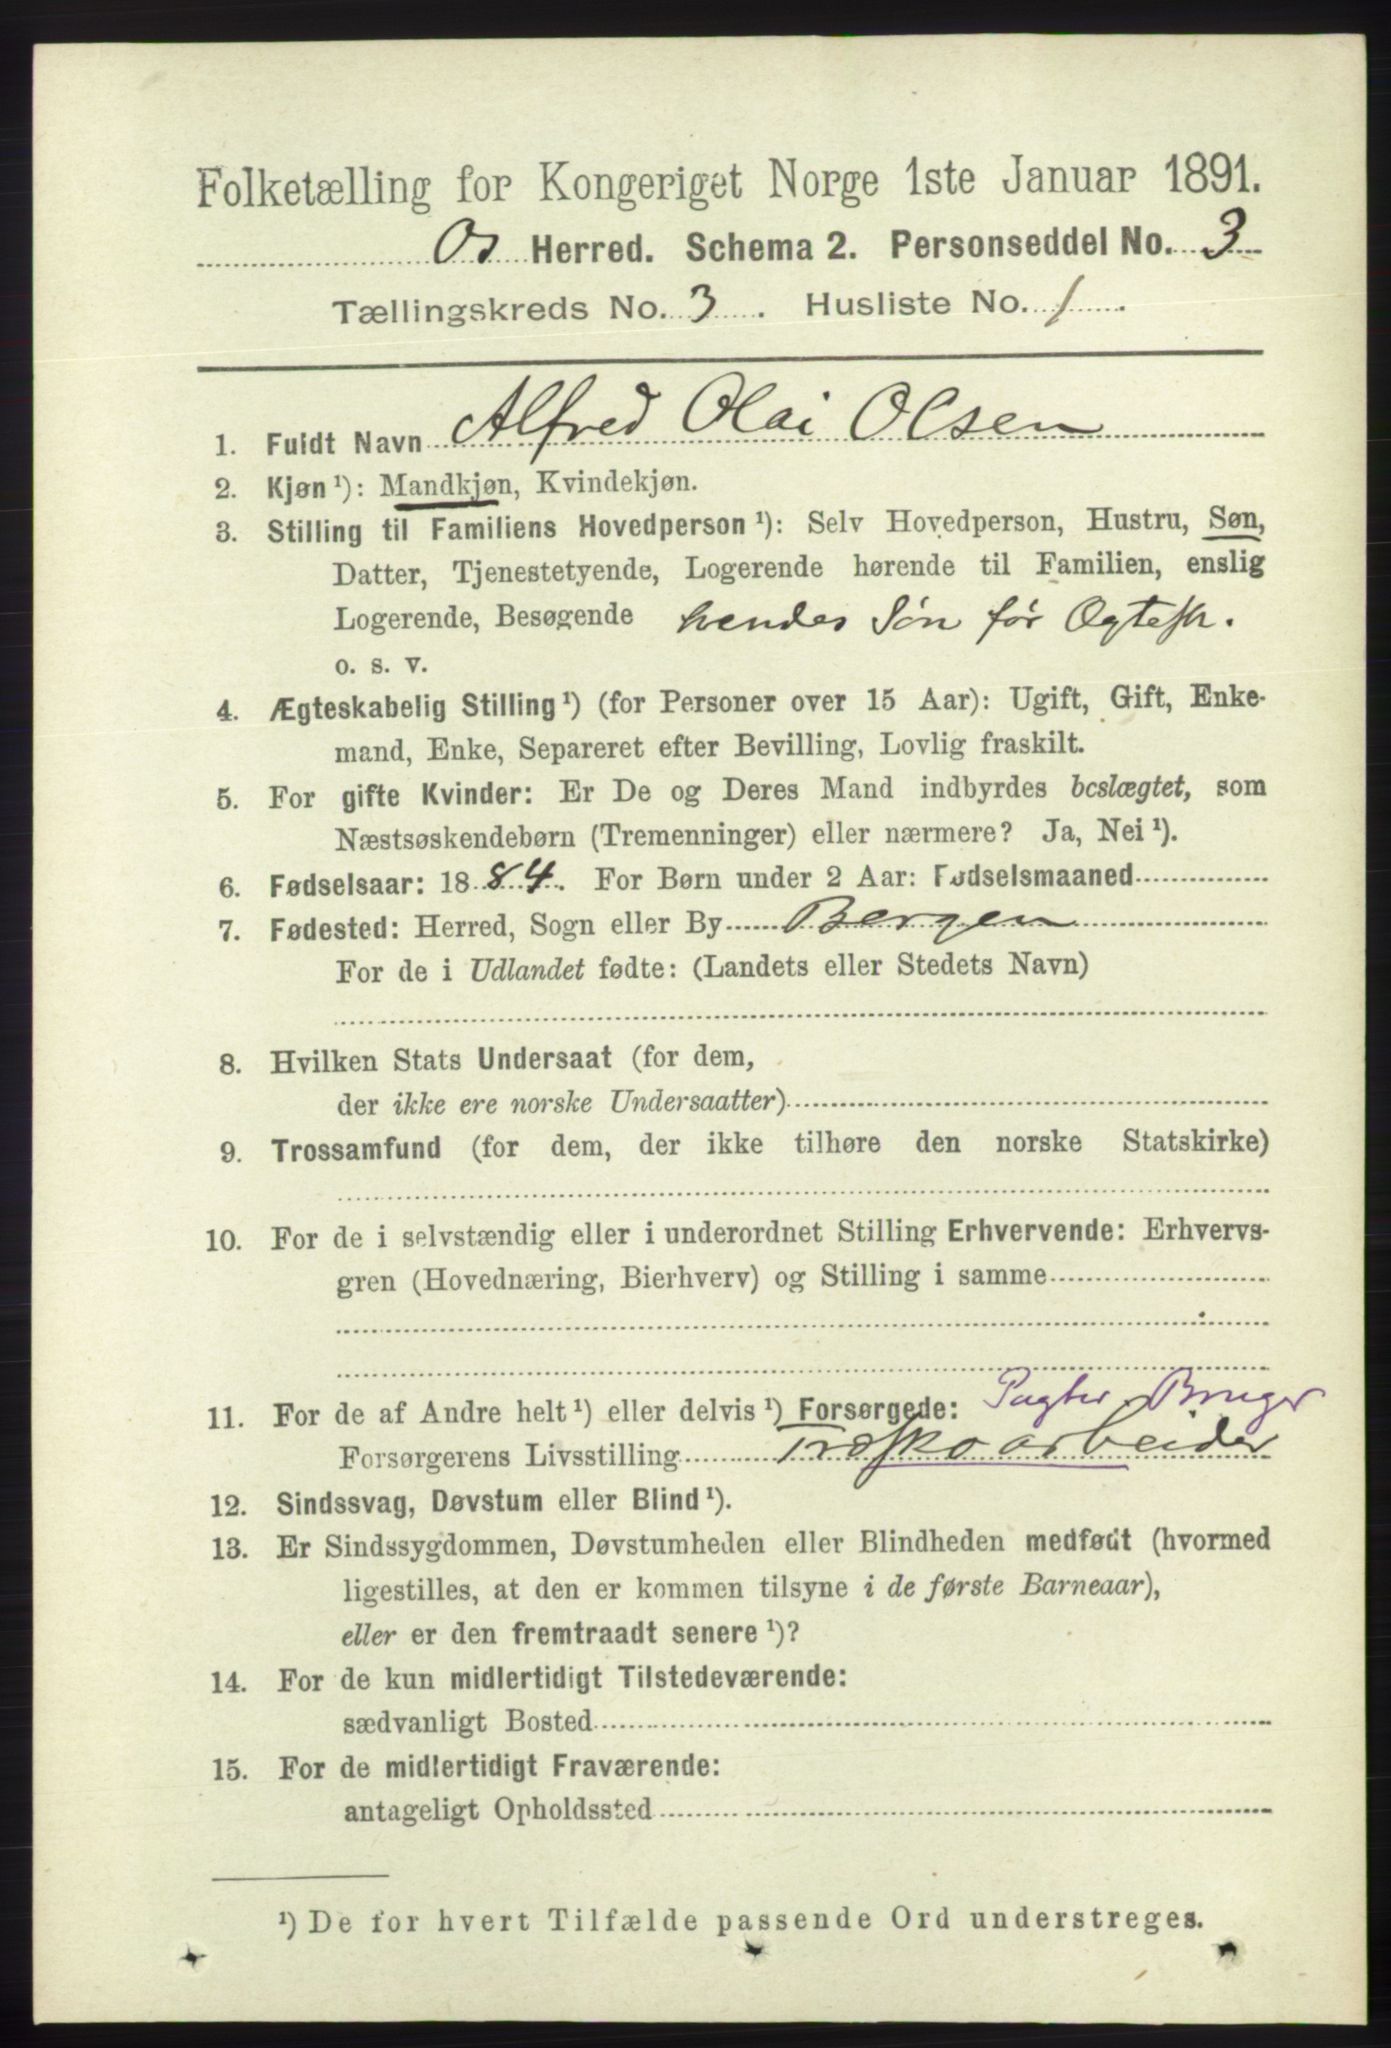 Folketælling for Kongeriget Norge 1ste Januar 1891.
Os Herred. Schema 2. Personseddel No. 3
Tællingskreds No. 3. Husliste No. 1.
1. Fuldt Navn Alfred Olai Olsen
2. Kjøn ¹): Mandkjøn, Kvindekjøn.
3. Stilling til Familiens Hovedperson ¹): Selv Hovedperson, Hustru, Søn,
Datter, Tjenestetyende, Logerende hørende til Familien, enslig
Logerende, Besøgende hendes Søn før Ægtesk.
o. s. v.
4. Ægteskabelig Stilling ¹) (for Personer over 15 Aar): Ugift, Gift, Enke-
mand, Enke, Separeret efter Bevilling, Lovlig fraskilt.
5. For gifte Kvinder: Er De og Deres Mand indbyrdes beslægtet, som
Næstsøskendebørn (Tremenninger) eller nærmere? Ja, Nei ¹).
6. Fødselsaar: 1884. For Børn under 2 Aar: Fødselsmaaned
7. Fødested: Herred, Sogn eller By Bergen
For de i Udlandet fødte: (Landets eller Stedets Navn)
8. Hvilken Stats Undersaat (for dem,
der ikke ere norske Undersaatter)
9. Trossamfund (for dem, der ikke tilhøre den norske Statskirke)
10. For de i selvstændig eller i underordnet Stilling Erhvervende: Erhvervs-
gren (Hovednæring, Bierhverv) og Stilling i samme
11. For de af Andre helt ¹) eller delvis ¹) Forsørgede: Pagter Bruger
Forsørgerens Livsstilling Træskoarbeider
12. Sindssvag, Døvstum eller Blind ¹).
13. Er Sindssygdommen, Døvstumheden eller Blindheden medfødt (hvormed
ligestilles, at den er kommen tilsyne i de første Barneaar),
eller er den fremtraadt senere ¹)?
14. For de kun midlertidigt Tilstedeværende:
sædvanligt Bosted
15. For de midlertidigt Fraværende:
antageligt Opholdssted
¹) De for hvert Tilfælde passende Ord understreges.